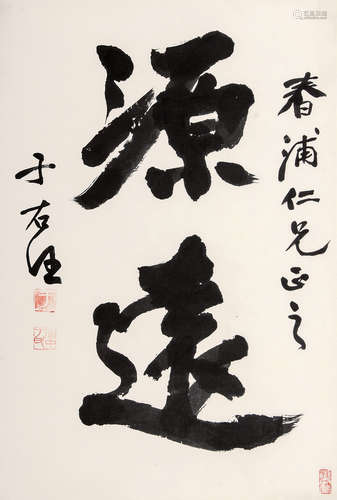 春浦仁兄正之
源遠
于右任